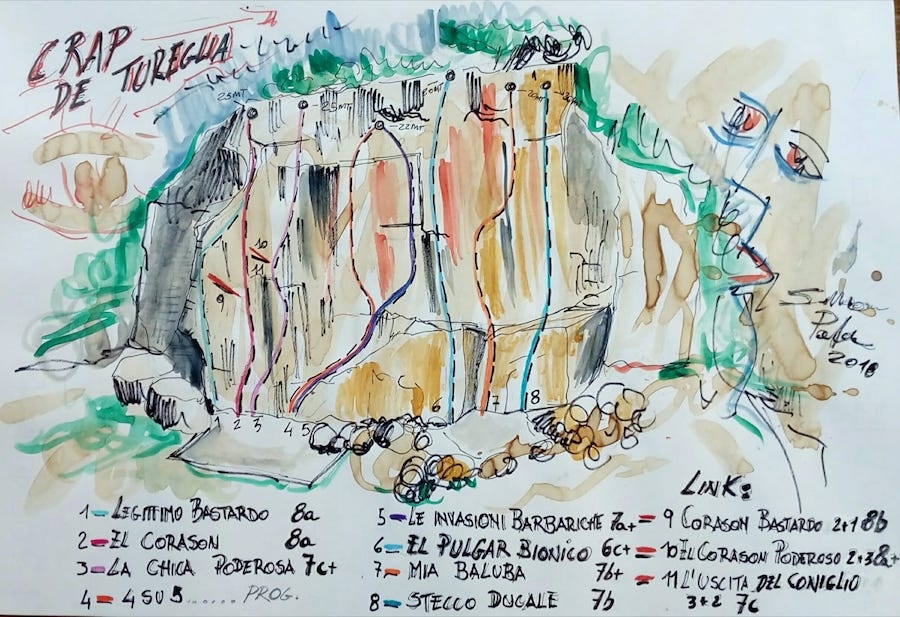 CRAP
DE TUREGLIA
25MT
25MT
22MT
20MT
20MT
20MT
10
11
9
2 3 4 5 6 7 8
2018
LINK:
1 - LEGITTIMO BASTARDO 8a
2 - EL CORASON 8a
3 - LA CHICA PODEROSA 7c+
4 - 4 SU 5....... PROG.
5 - LE INVASIONI BARBARICHE 7a+
6 - EL PULGAR BIONICO 6c+
7 - MIA BALUBA 7b+
8 - STECCO DUCALE 7b
9 CORASON BASTARDO 2+1 8b
10 EL CORASON PODEROSO 2+3 8a+
11 L'USCITA DEL CONIGLIO
3+2 7c